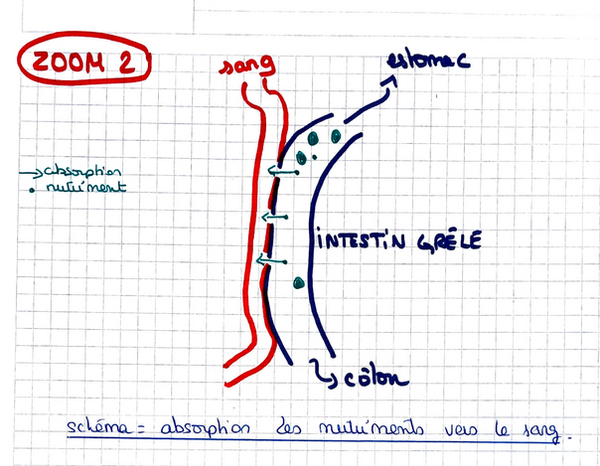 ZOOM 2
sang
estomac
→ absorption
• nutriment
INTESTIN GRÊLE
côlon
schéma = absorption des nutriments vers le sang.